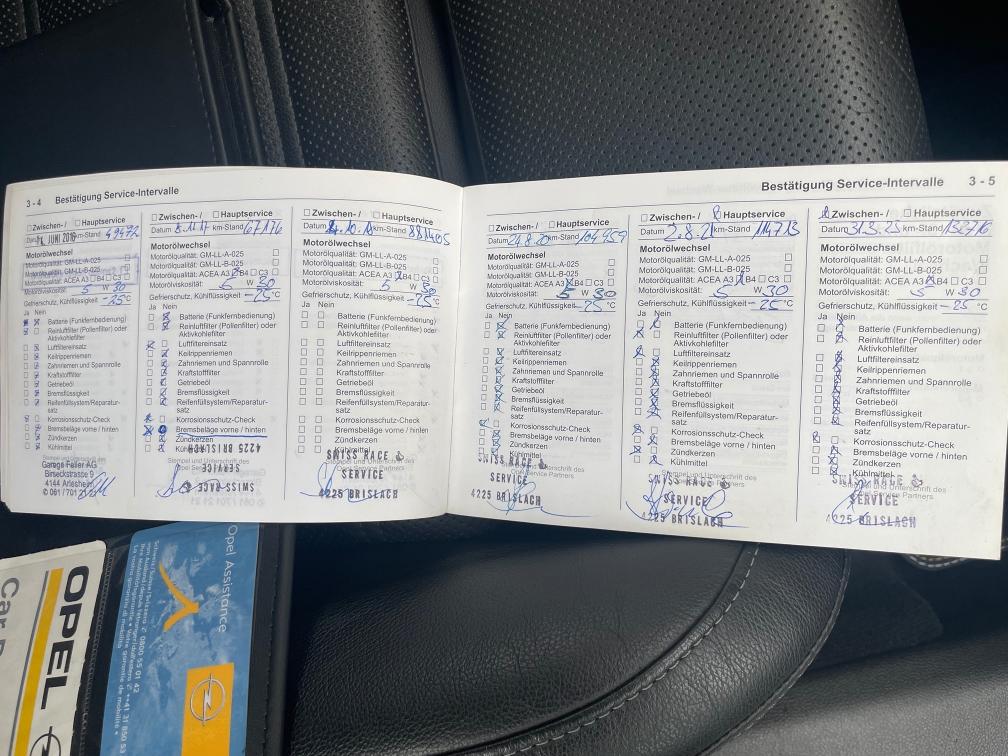 3 - 4 Bestätigung Service-Intervalle
Zwischen-/ Hauptservice
Datum JUNI 2016 km-Stand 49472
Motorölwechsel
Motorölqualität: GM-LL-A-025
Motorölqualität: GM-LL-B-025
Motorölqualität: ACEA A3 B4 C3
Motorölviskosität: 5 W 30
Gefrierschutz, Kühlflüssigkeit -25 °C
Ja Nein
Batterie (Funkfernbedienung)
Reinluftfilter (Pollenfilter) oder
Aktivkohlefilter
Luftfiltereinsatz
Keilrippenriemen
Zahnriemen und Spannrolle
Kraftstofffilter
Getriebeöl
Bremsflüssigkeit
Reifenfüllsystem/Reparatur-
satz
Korrosionsschutz-Check
Bremsbeläge vorne / hinten
Zündkerzen
Kühlmittel
Garage Feller AG
Birseckstrasse
4144 Arlesheim
✆ 061 / 701 21
Zwischen-/ Hauptservice
Datum 8.11.17 km-Stand 67176
Motorölwechsel
Motorölqualität: GM-LL-A-025
Motorölqualität: GM-LL-B-025
Motorölqualität: ACEA A3 B4 C3
Motorölviskosität: 5 W 30
Gefrierschutz, Kühlflüssigkeit -25 °C
Ja Nein
Batterie (Funkfernbedienung)
Reinluftfilter (Pollenfilter) oder
Aktivkohlefilter
Luftfiltereinsatz
Keilrippenriemen
Zahnriemen und Spannrolle
Kraftstofffilter
Getriebeöl
Bremsflüssigkeit
Reifenfüllsystem/Reparatur-
satz
Korrosionsschutz-Check
Bremsbeläge vorne / hinten
Zündkerzen
Kühlmittel
4225 BRISLACH
SERVICE
SWISS-RACE
Zwischen-/ Hauptservice
Datum km-Stand
Motorölwechsel
Motorölqualität: GM-LL-A-025
Motorölqualität: GM-LL-B-025
Motorölqualität: ACEA A3 B4 C3
Motorölviskosität: 5 W 30
Gefrierschutz, Kühlflüssigkeit -25 °C
Ja Nein
Batterie (Funkfernbedienung)
Reinluftfilter (Pollenfilter) oder
Aktivkohlefilter
Luftfiltereinsatz
Keilrippenriemen
Zahnriemen und Spannrolle
Kraftstofffilter
Getriebeöl
Bremsflüssigkeit
Reifenfüllsystem/Reparatur-
satz
Korrosionsschutz-Check
Bremsbeläge vorne / hinten
Zündkerzen
Kühlmittel
SWISS RACE
SERVICE
4225 BRISLACH
Bestätigung Service-Intervalle 3 - 5
Zwischen-/ Hauptservice
Datum 24.8.20 km-Stand 104959
Motorölwechsel
Motorölqualität: GM-LL-A-025
Motorölqualität: GM-LL-B-025
Motorölqualität: ACEA A3 B4 C3
Motorölviskosität: 5 W 30
Gefrierschutz, Kühlflüssigkeit -25 °C
Ja Nein
Batterie (Funkfernbedienung)
Reinluftfilter (Pollenfilter) oder
Aktivkohlefilter
Luftfiltereinsatz
Keilrippenriemen
Zahnriemen und Spannrolle
Kraftstofffilter
Getriebeöl
Bremsflüssigkeit
Reifenfüllsystem/Reparatur-
satz
Korrosionsschutz-Check
Bremsbeläge vorne / hinten
Zündkerzen
Kühlmittel
SWISS RACE
Stempel und Unterschrift des
Opel Service Partners
SERVICE
4225 BRISLACH
Zwischen-/ Hauptservice
Datum 2.8.21 km-Stand 114713
Motorölwechsel
Motorölqualität: GM-LL-A-025
Motorölqualität: GM-LL-B-025
Motorölqualität: ACEA A3 B4 C3
Motorölviskosität: 5 W 30
Gefrierschutz, Kühlflüssigkeit -25 °C
Ja Nein
Batterie (Funkfernbedienung)
Reinluftfilter (Pollenfilter) oder
Aktivkohlefilter
Luftfiltereinsatz
Keilrippenriemen
Zahnriemen und Spannrolle
Kraftstofffilter
Getriebeöl
Bremsflüssigkeit
Reifenfüllsystem/Reparatur-
satz
Korrosionsschutz-Check
Bremsbeläge vorne / hinten
Zündkerzen
Kühlmittel
SWISS RACE
SERVICE
4225 BRISLACH
Zwischen-/ Hauptservice
Datum 31.3.23 km-Stand 132716
Motorölwechsel
Motorölqualität: GM-LL-A-025
Motorölqualität: GM-LL-B-025
Motorölqualität: ACEA A3 B4 C3
Motorölviskosität: 5 W 30
Gefrierschutz, Kühlflüssigkeit -25 °C
Ja Nein
Batterie (Funkfernbedienung)
Reinluftfilter (Pollenfilter) oder
Aktivkohlefilter
Luftfiltereinsatz
Keilrippenriemen
Zahnriemen und Spannrolle
Kraftstofffilter
Getriebeöl
Bremsflüssigkeit
Reifenfüllsystem/Reparatur-
satz
Korrosionsschutz-Check
Bremsbeläge vorne / hinten
Zündkerzen
Kühlmittel
SWISS RACE
Stempel und Unterschrift des
Opel Service Partners
SERVICE
4225 BRISLACH
OPEL
Car
Opel Assistance
Schweiz/Suisse/Svizzera ✆ 0800 55 01 42
von Ausland/depuis l'étranger/dall'estero ✆ ++41 31 850 53
Ihre Mobilitätsgarantie • Votre garantie de mobilité •
La vostra garanzia di mobilità